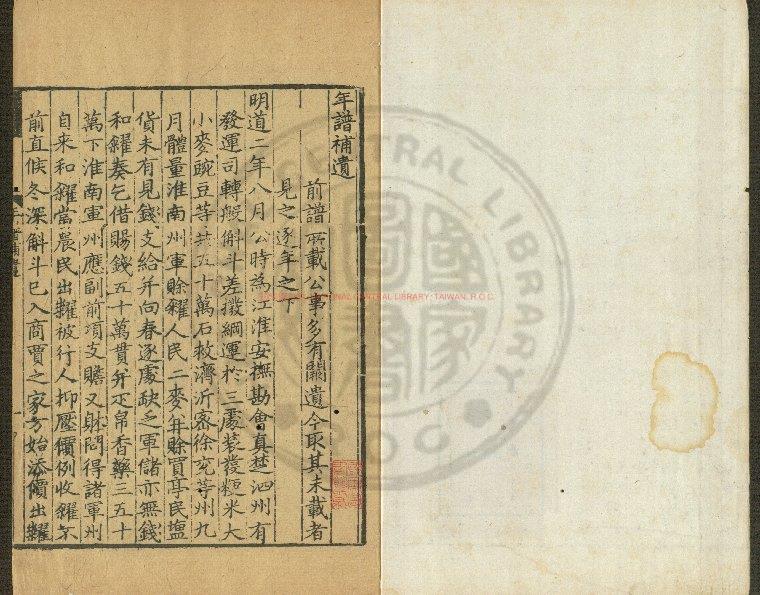 年譜補遺
前譜所載公事多有闕遺今取其未載者
見之逐年之下
明道二年八月公時為江淮安撫勘會真楚泗州有
發運司轉般斛斗差撥綱運於三處裝發粳米大
小麥豌豆等共五十萬石救濟沂密徐兗等州九
月體量淮南州軍賒糴人民二麥并賒買亭民塩
貨未有見錢支給并向春逐處缺乏軍儲亦無錢
和糴奏乞借賜錢五十萬貫并疋帛香藥三五十
萬下淮南軍州應副前項支贍又財問得諸軍州
自来和糴當農民出糶被行人抑壓價例收糴不
前直候冬深斛斗已入商賈之家方始添價出糶
NATIONAL CENTRAL LIBRARY, TAIWAN, R.O.C.
CENTRAL LIBRARY
ROC
國家圖